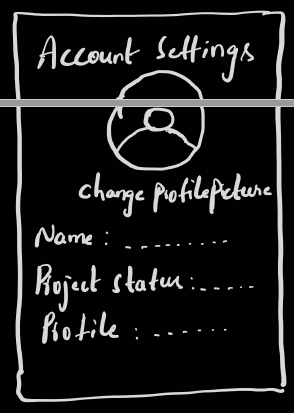 Account Settings
Change Profile Picture
Name : .........
Project Status : ......
Profile : .......